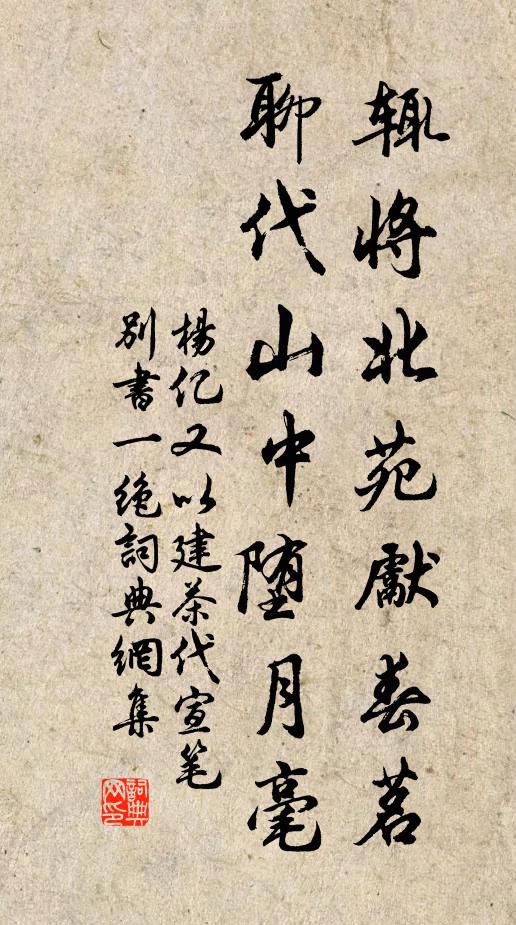 輒將北苑獻春茗
聊代山中墮月毫
楊亿又以建茶代宣笔
別書一絶詞典網集
詞典网印